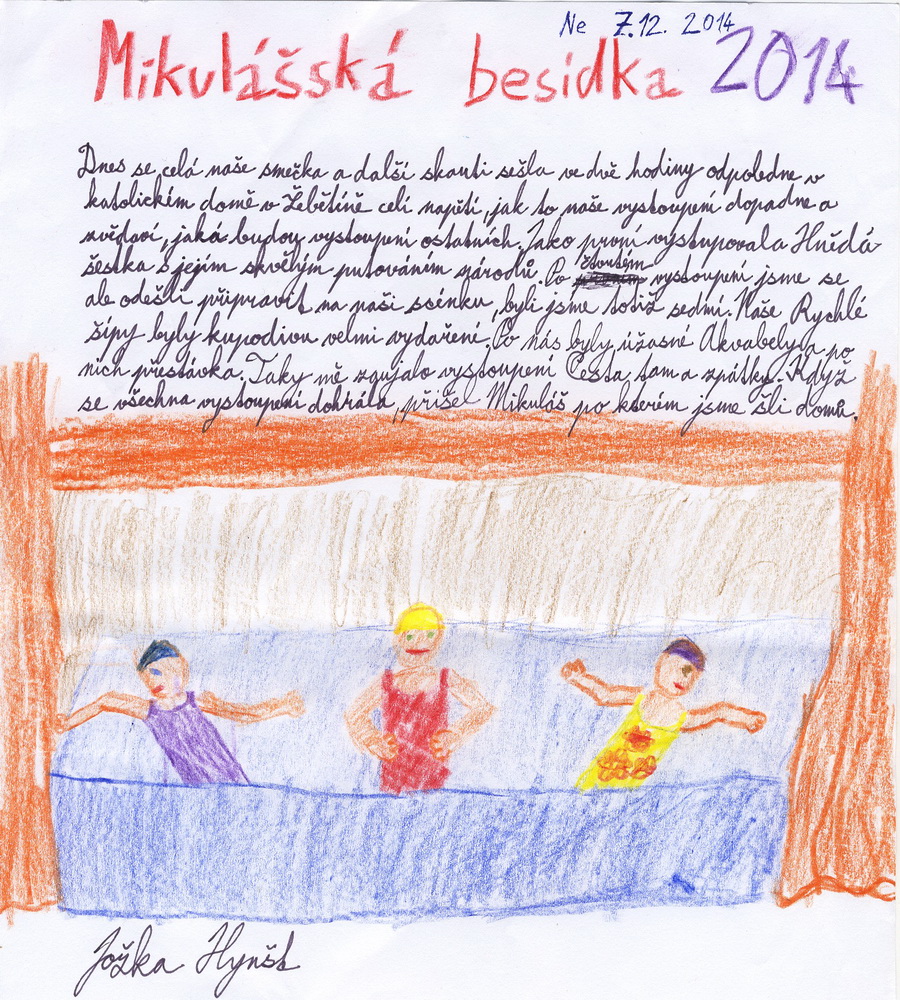 Ne 7.12. 2014
Mikulášská besídka 2014
Dnes se celá naše smečka a další skauti sešla ve dvě hodiny odpoledne v
katolickém domě v Žebětíně celí napětí, jak to naše vystoupení dopadne a
zvědaví, jaká budou vystoupení ostatních. Jako první vystupovala Hnědá
šestka s jejím skvělým putováním národů. Po čtvrtém vystoupení jsme se
ale odešli připravit na naši scénku, byli jsme totiž sedmí. Naše Rychlé
šípy byly kupodivu velmi vydařené. Po nás byly úžasné Akvabely a po
nich přestávka. Taky mě zaujalo vystoupení Cesta tam a zpátky. Když
se všechna vystoupení dohrála, přišel Mikuláš po kterém jsme šli domů.
Jožka Hynšt